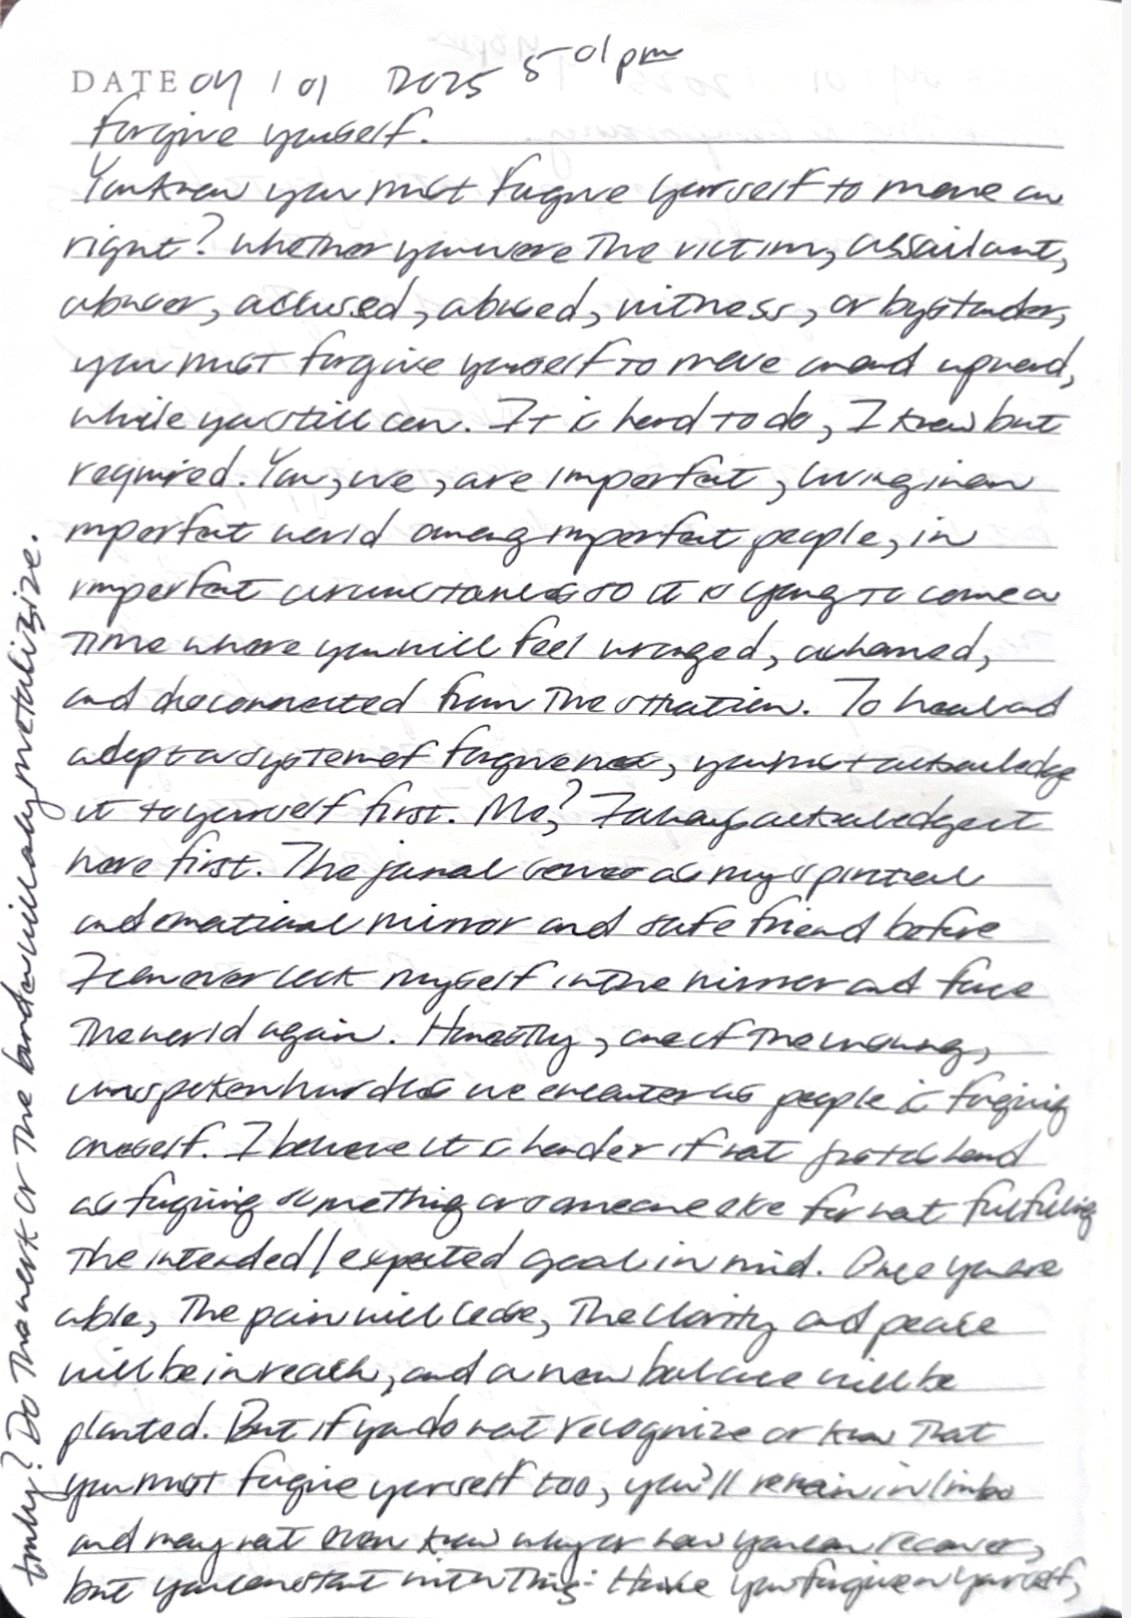 DATE 04 / 01 2025 5:01pm
Forgive yourself.
You know you must forgive yourself to move on
right? Whether you were the victim, assailant,
abuser, accused, abused, witness, or bystander,
you must forgive yourself to move onand upward,
while you still can. It is hard to do, I know but
required. You, we, are imperfect, living in an
imperfect world among imperfect people, in
imperfect circumstances so it is going to come a
time where you will feel wronged, ashamed,
and disconnected from the situation. To heal and
adopt a system of forgiveness, you must acknowledge
it to yourself first. Me? I always acknowledge it
here first. The journal serves as my spiritual
and emotional mirror and safe friend before
I can ever look myself in the mirror and face
the world again. Honestly, one of the
unspoken hurdles we encounter as people is forgiving
oneself. I believe it is harder if not just as hard
as forgiving something or someone else for not fulfilling
the intended/expected goal in mind. Once you are
able, the pain will cease, the clarity and peace
will be in reach, and a new balance will be
planted. But if you do not recognize or know that
you must forgive yourself too, you'll remain in limbo
and may not even know why or how you can recover,
but you can start with this: Have you forgiven yourself,
truly? Do the work or the burden will only metabolize.